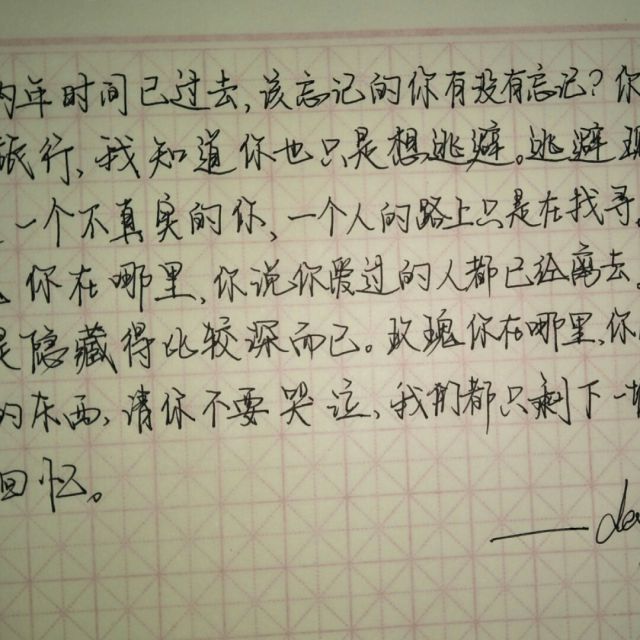 两年时间已过去,该忘记的你有没有忘记?你
旅行,我知道你也只是想逃避。逃避现
一个不真实的你,一个人的路上只是在找寻
你在哪里,你说你爱过的人都已经离去。
是隐藏得比较深而已。玫瑰你在哪里,你
的东西,请你不要哭泣,我们都只剩下一
回忆。